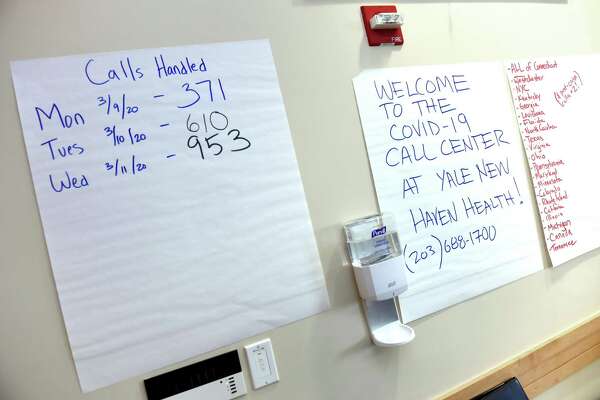 Calls Handled
Mon 3/9/20 - 371
Tues 3/10/20 - 610
Wed 3/11/20 - 953
FIRE
WELCOME
TO THE
COVID-19
CALL CENTER
AT YALE NEW
HAVEN HEALTH!
(203) 688-1700
Purell
- ALL of Connecticut
- Westchester
- NYC
- Kentucky
- Georgia
- Louisiana
- Florida
- North Carolina
- Texas
- Virginia
- Ohio
- Pennsylvania
- Maryland
- Minnesota
- Colorado
- Rhode Island
- California
- Illinois
- Michigan
- Canada
- Tennessee